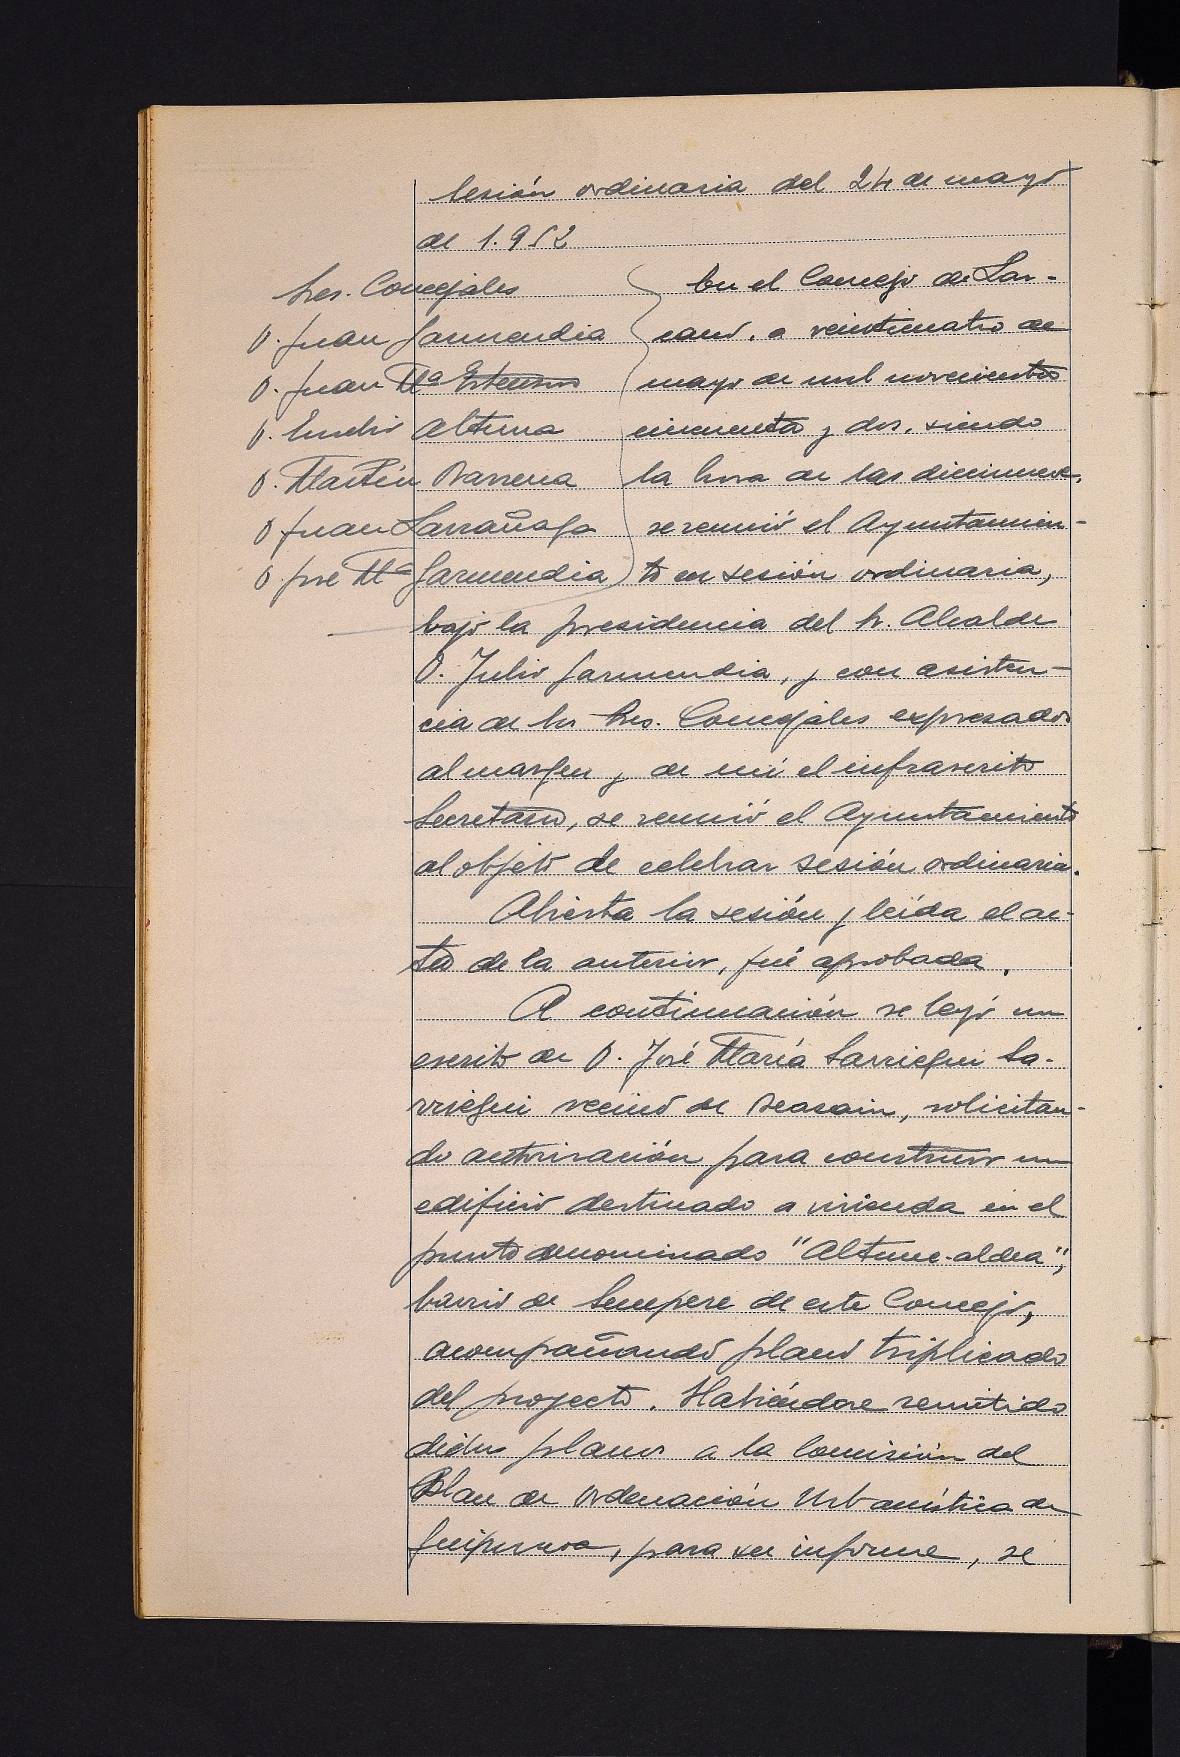 Sesión ordinaria del 24 de mayo
de 1.952
Sres. Concejales
D. Juan Garmendia
D. Juan Mª
D. Emilio Altuna
D. Martín Barrena
D. Juan Larrañaga
D. José Mª Garmendia
En el Concejo de Laz-
cano, a veinticuatro de
mayo de mil novecientos
cincuenta y dos, siendo
la hora de las diecinueve,
se reunió el Ayuntamien-
to en sesión ordinaria,
bajo la presidencia del Sr. Alcalde
D. Julio Garmendia, y con asisten-
cia de los Sres. Concejales expresados
al margen y de mí el infrascrito
Secretario, se reunió el Ayuntamiento
al objeto de celebrar sesión ordinaria.
Abierta la sesión y leída el ac-
ta de la anterior, fué aprobada.
A continuación se leyó un
escrito de D. José María Sarriegui Sa-
rriegui vecino de Beasain, solicitan-
do autorización para construir un
edificio destinado a vivienda en el
punto denominado "Altune-aldea",
barrio de Senpere de este Concejo,
acompañando plano triplicado
del proyecto. Habiéndose remitido
dichos planos a la Comisión del
Plan de Ordenación Urbanística de
Guipuzcoa, para su informe, se